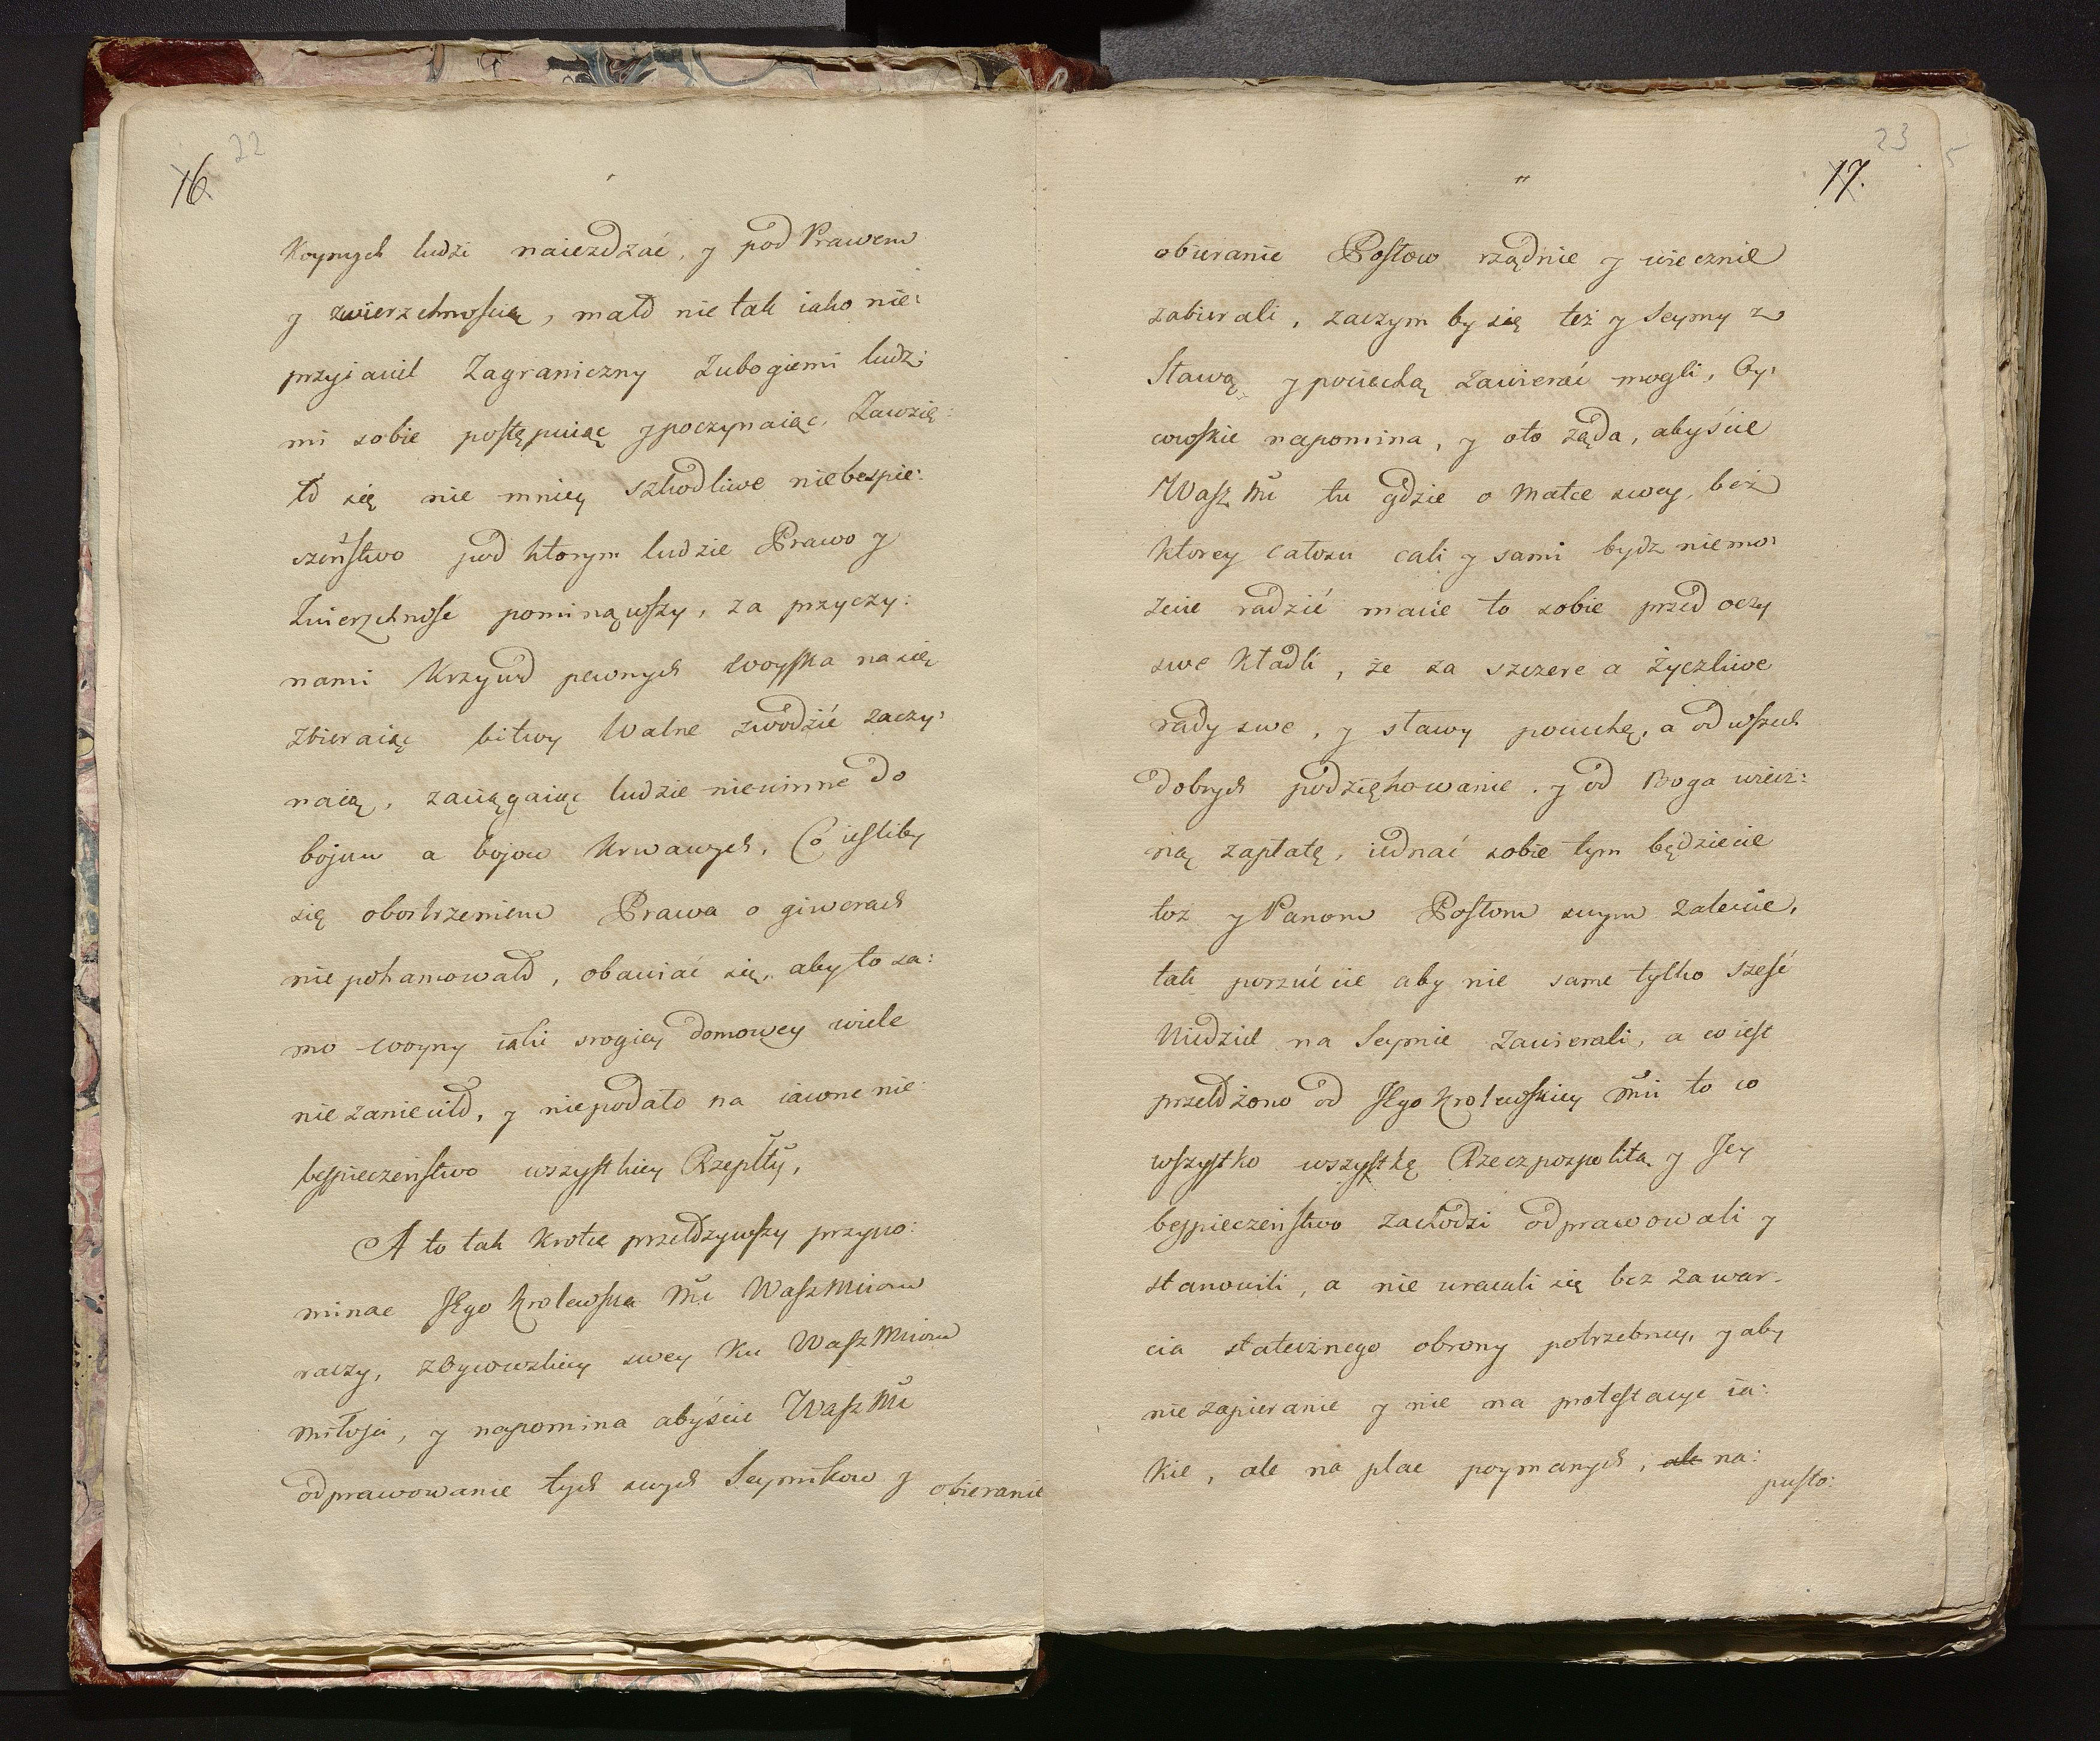 16. 22
Koynych ludzi naiezdzać, y pod Prawem
y zwierzchnością, mało nie tak iako nie:
przyiaciel Zagraniczny Zubogiemi ludz:
mi sobie postępuiąc y poczynaiąc. Zawzię:
to się nie mniey szkodliwe niebespie:
czeństwo pod ktorym ludzie Prawo y
Zwierzchność pominąwszy, za przyczy:
nami Krzywd pewnych woyska na się
zbieraiąc bitwy Walne zwodzić zaczy:
naią, zaciągaiąc ludzie niewinne do
bojow a bojow Krwawych, Co iesliby
się obostrzeniem Prawa o giwerach
nie pohamowało, obawiać się, aby to sa:
mo woyny iakie srogiey domowey wiele
nie zanieciło, y niepodało na iawne nie:
bespieczeństwo wszystkiey Rzeplty,
A to tak krotce przełożywszy przypo:
minac JEgo Krolewska Mć WaszMciom
raczy, z Oycowskiey swey ku WaszMciom
miłosci, y napomina abyście WaszMć
odprawowanie tych swych Seymikow y obieranie
17. 23. 5
obieranie Posłow rządnie y wiecznie
zabierali, zaczym by się też y Seymy z
Sławą y pociechą zawierać mogli, Oy:
cowskie napomina, y oto żąda, abyście
WaszMć tu gdzie o Matce swey, bez
Ktorey całosci cali y sami bydz niemo:
żecie radzić macie to sobie przed oczy
swe Kładli, że za szczere a życzliwe
rady swe, y sławy pociechę, a od wszech
dobrych podziękowanie. y od Boga wiecz:
ną zapłatę, iednać sobie tym będziecie
toż y Panom Posłom swym zalecie,
tak porzućcie aby nie same tylko sześć
Niedziel na Seymie Zawierali, a co iest
przełożono od JEgo Krolewskiey Mći to co
wszystko wszystkę Rzeczpospolitą y Jey
bespieczeństwo zachodzi odprawowali y
stanowili, a nie wracali się bez zawar:
cia statecznego obrony potrzebney, y aby
nie zapieranie y nie na protestacye ia:
Kie, ale na plac poymanych, ale na:
pusto: